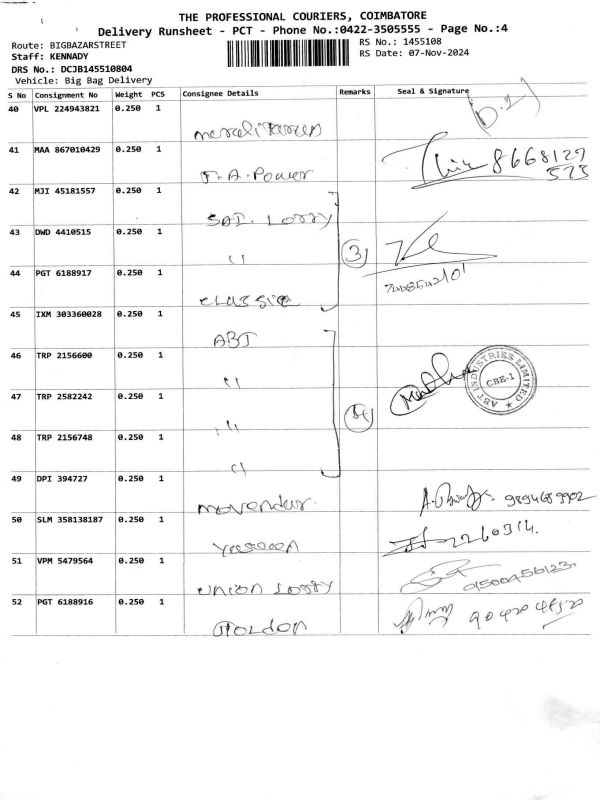 THE PROFESSIONAL COURIERS, COIMBATORE
Delivery Runsheet - PCT - Phone No.:0422-3505555 - Page No.:4
Route: BIGBAZARSTREET
RS No.: 1455108
Staff: KENNADY
RS Date: 07-Nov-2024
DRS No.: DCJB145510804
Vehicle: Big Bag Delivery
S No Consignment No Weight PCS Consignee Details Remarks Seal & Signature
40 VPL 224943821 0.250 1
41 MAA 867010429 0.250 1
8668127
T.A. Power
575
42 MJI 45181557 0.250 1
SAI. Lorry
43 DWD 4410515 0.250 1
" 3
44 PGT 6188917 0.250 1
classic
45 IXM 303360028 0.250 1
ABT
46 TRP 2156600 0.250 1
"
ABT INDUSTRIES LIMITED
CBE-1
47 TRP 2582242 0.250 1
"
48 TRP 2156748 0.250 1
"
49 DPI 394727 0.250 1
Movendur. 9894689902
50 SLM 358138187 0.250 1
2260314.
51 VPM 5479564 0.250 1
union Lorry 9500456123
52 PGT 6188916 0.250 1
Goldon